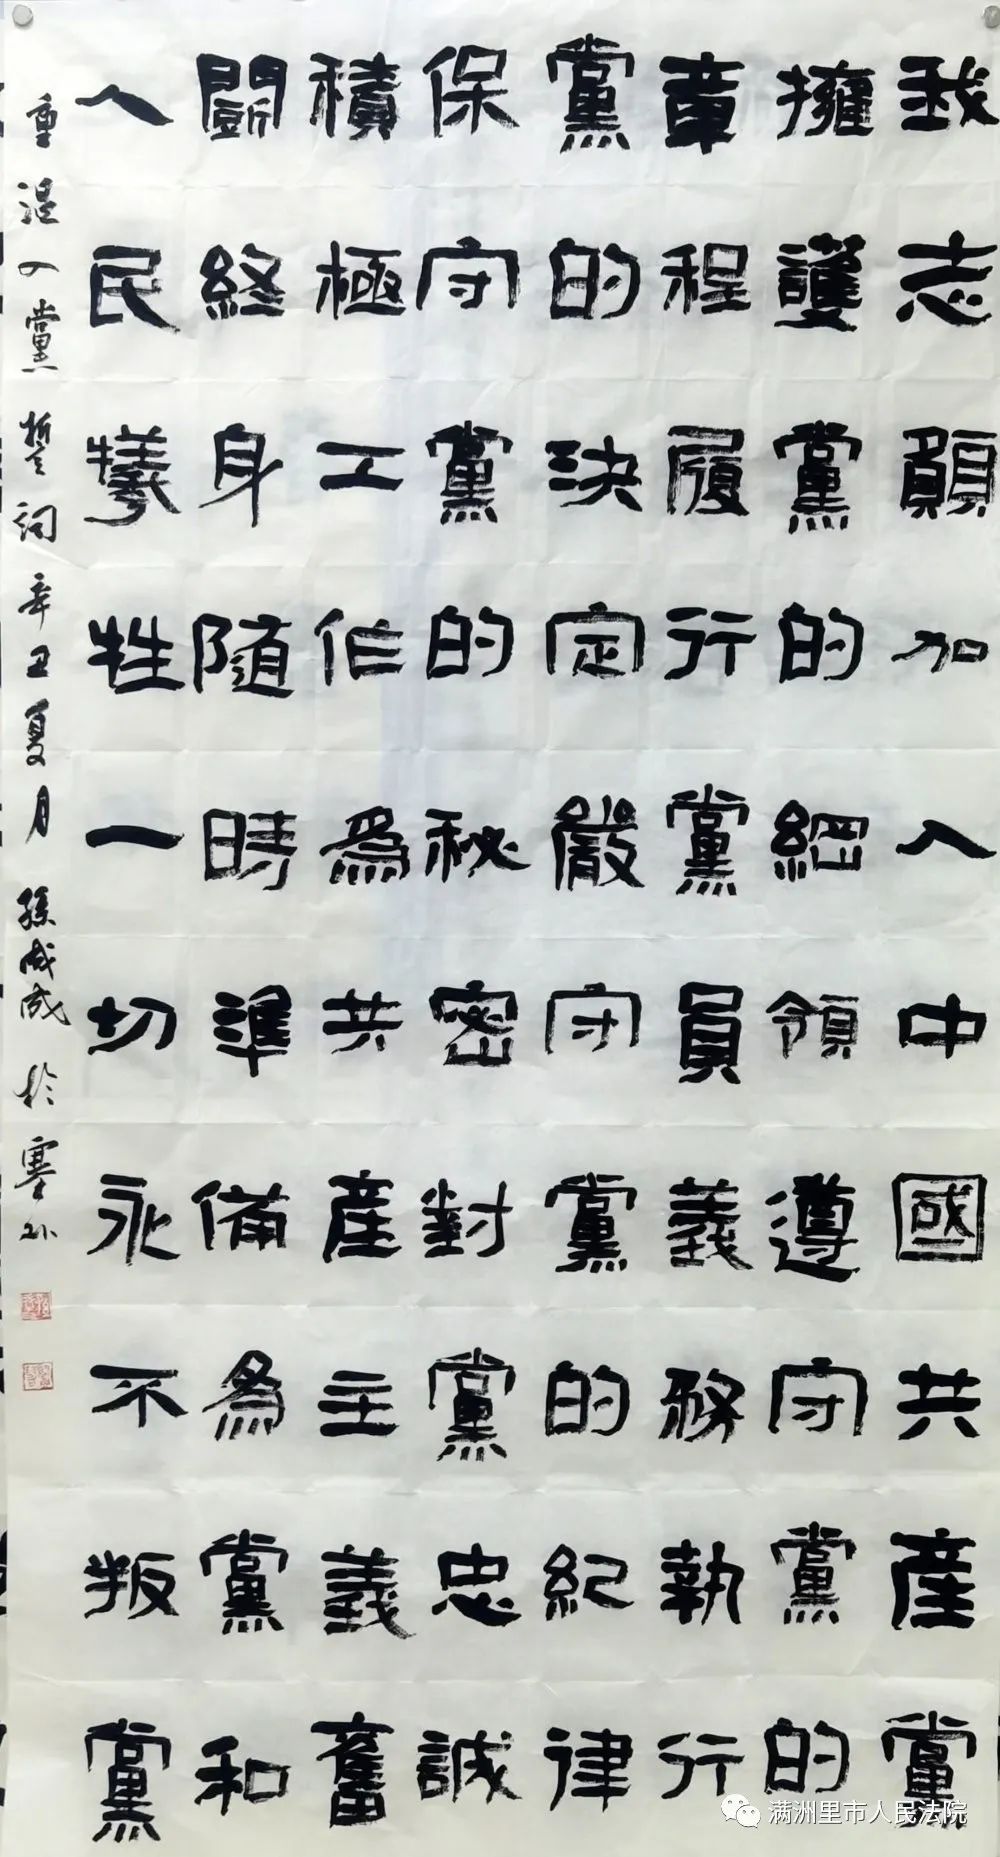 我志願加入中國共產黨
擁護黨的綱領遵守黨的
章程履行黨員義務執行
黨的決定嚴守黨的紀律
保守黨的秘密對黨忠誠
積極工作為共產主義奮
鬭終身隨時準備為黨和
人民犧牲一切永不叛黨
重温入黨誓詞辛丑夏月孫成成於塞外
满洲里市人民法院